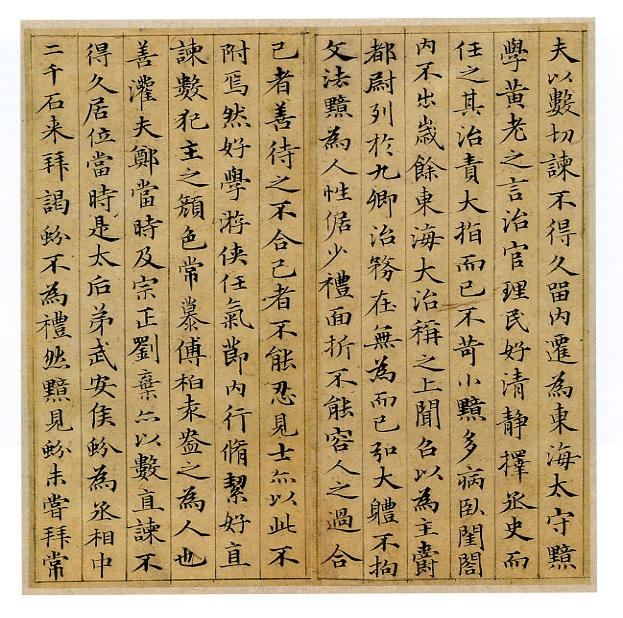 夫以數切諫不得久留内遷為東海太守黯
學黃老之言治官理民好清靜擇丞史而
任之其治責大指而已不苛小黯多病臥閨閤
内不出歲餘東海大治稱之上聞召以為主爵
都尉列於九卿治務在無為而已弘大軆不拘
文法黯為人性倨少禮面折不能容人之過合
己者善待之不合己者不能忍見士亦以此不
附焉然好學游侠任氣節内行脩絜好直
諫數犯主之顏色常慕傅柏袁盎之為人也
善灌夫鄭當時及宗正劉棄亦以數直諫不
得久居位當時是太后弟武安侯蚡為丞相中
二千石来拜謁蚡不為禮然黯見蚡未嘗拜常